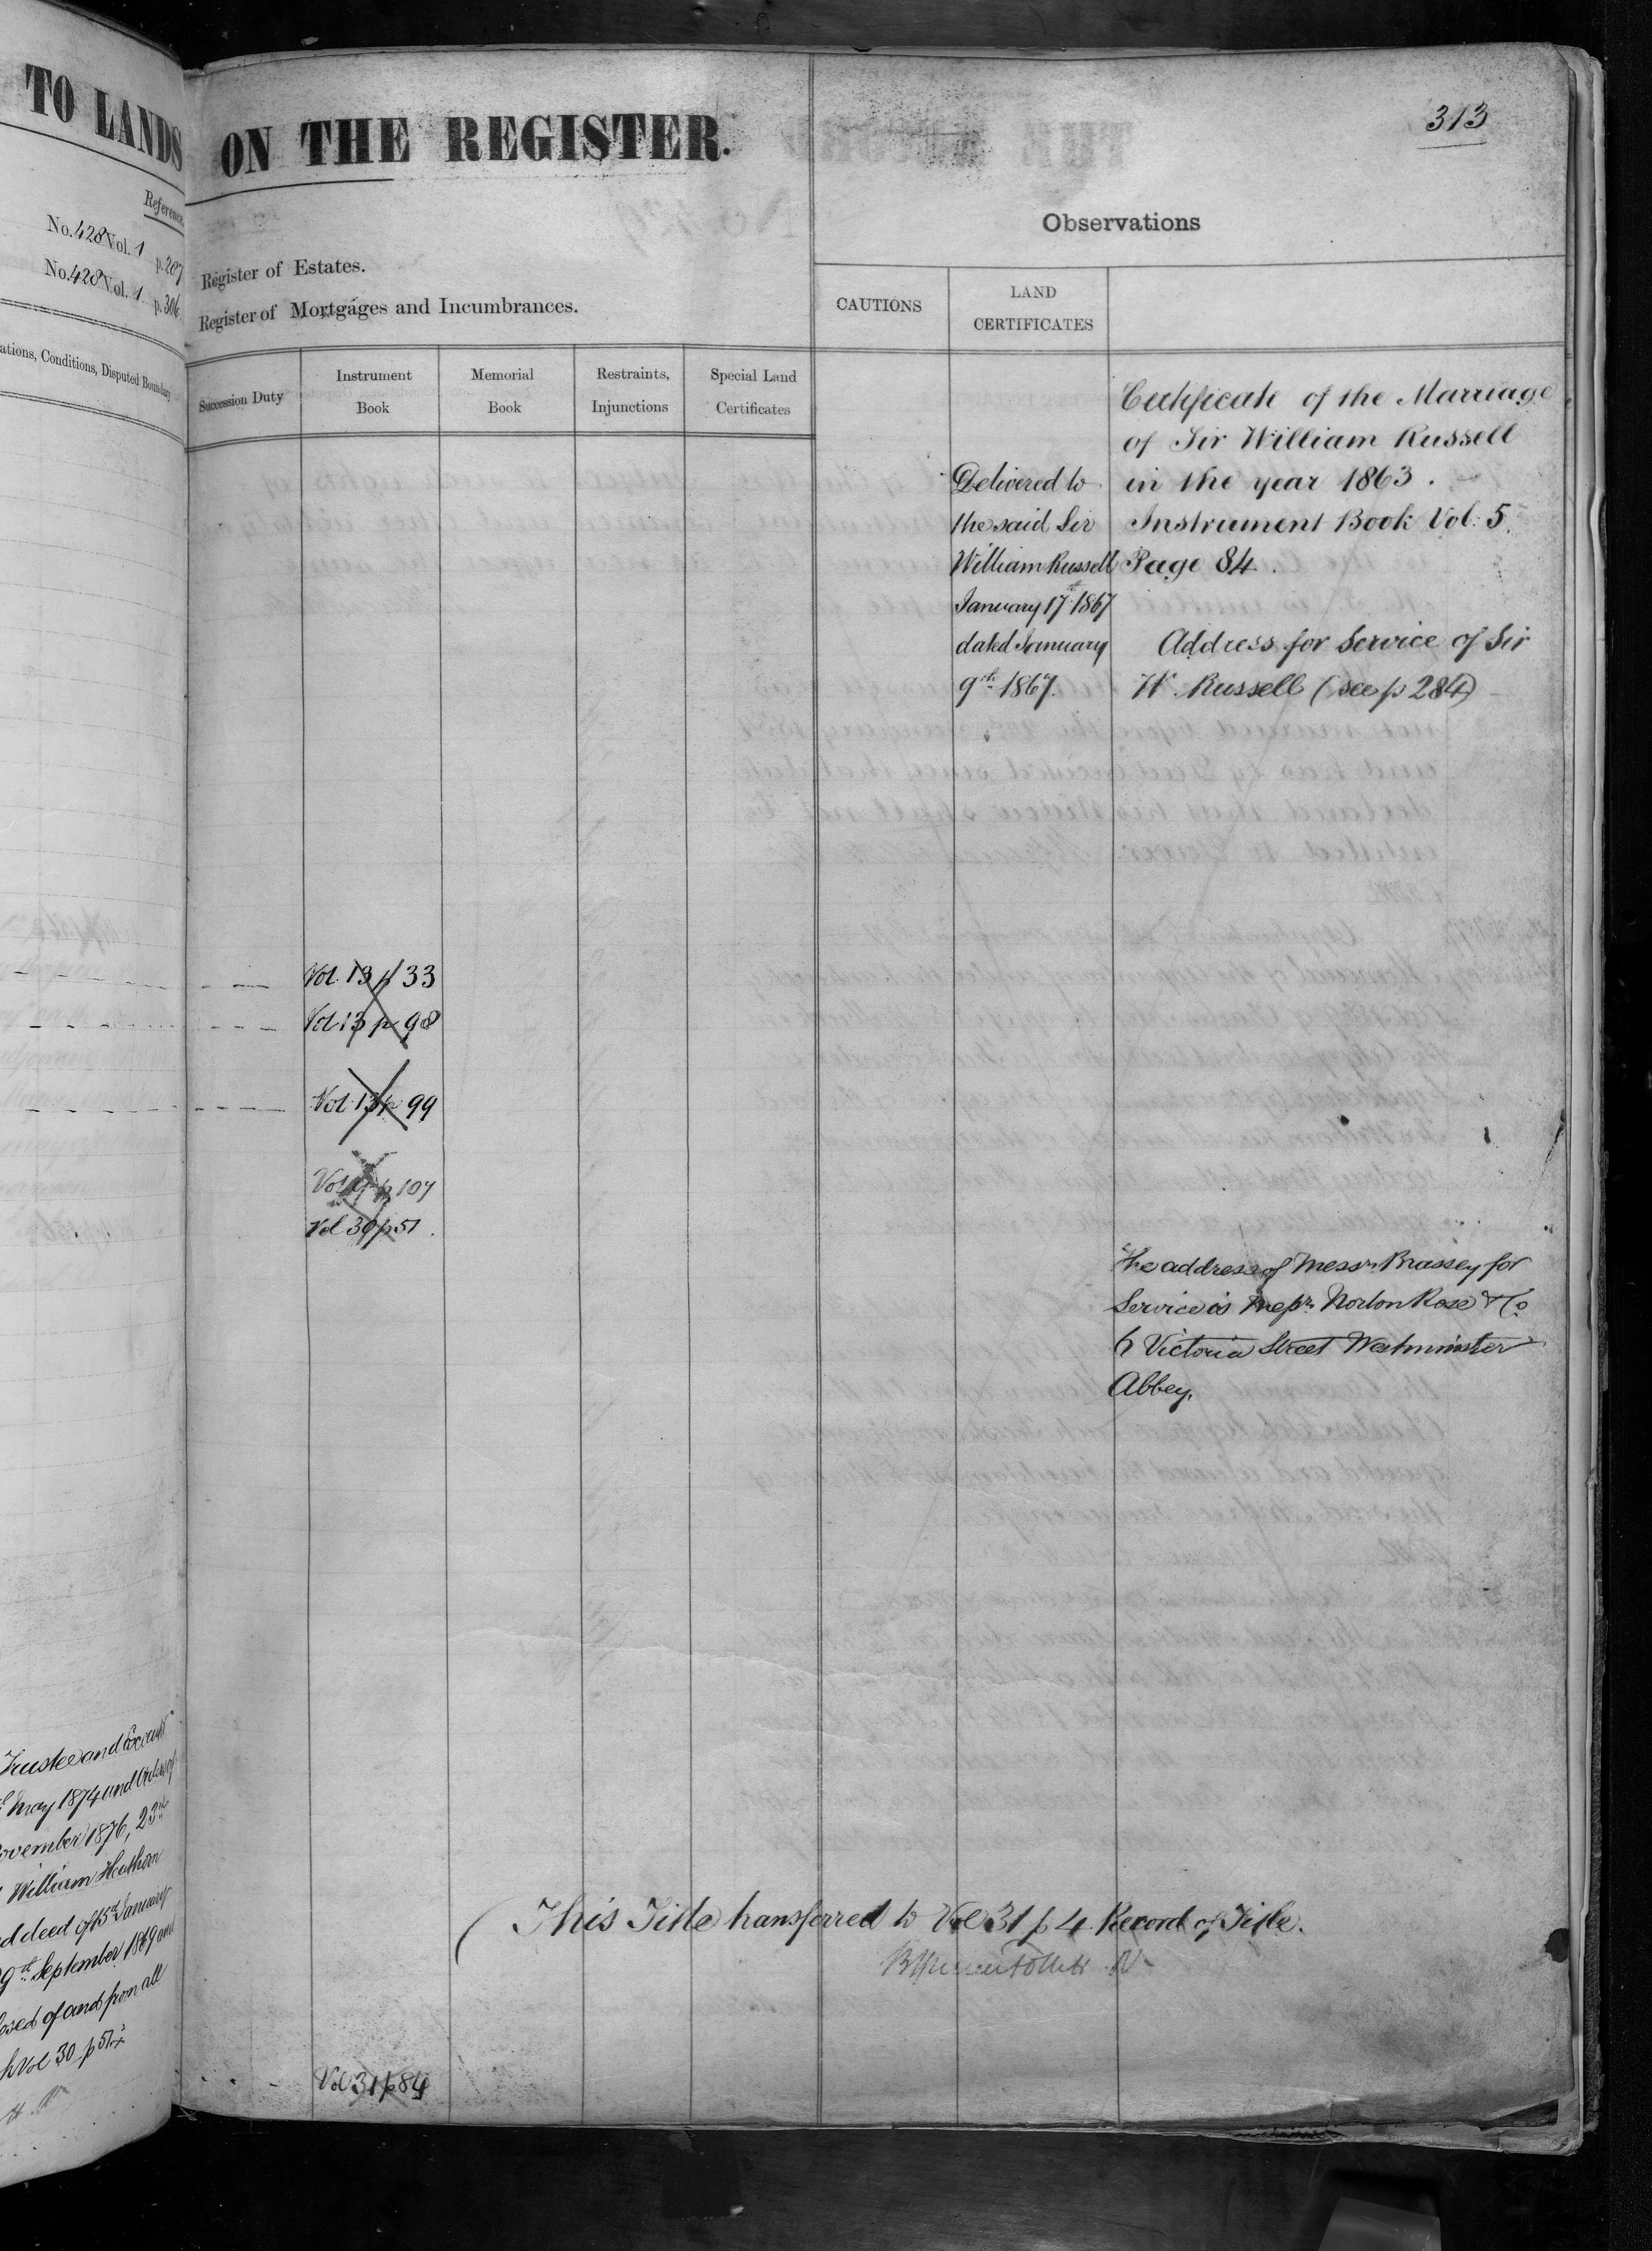 TO LANDS
Reference.
No. 428 Vol. 1 p. 207
No. 428 Vol. 1. p. 306
ations, Conditions, Disputed Boundary
Trustee and
May 1874 and
ovember 1876, 23rd
William Heathorn
d deed of 15th January
9th September 1869 and
osed of and from all
Vol 30 p 51
ON THE REGISTER.
313
Register of Estates.
Register of Mortgages and Incumbrances.
Observations
CAUTIONS
LAND
CERTIFICATES
Succession Duty
Instrument
Book
Memorial
Book
Restraints,
Injunctions
Special Land
Certificates
Delivered to
the said Sir
William Russell
January 17th 1867
dated January
9th 1867.
Certificate of the Marriage
of Sir William Russell
in the year 1863.
Instrument Book Vol: 5.
Page 84.
Address for Service of Sir
W. Russell (see p 284)
Vol. 13 p 33
Vol 13 p 98
Vol. 13 p 99
Vol p 107
Vol 30 p 51.
The address of Messrs. Brassey for
Service is Messrs. Norton Rose & Co
6 Victoria Street Westminster
Abbey.
This Title transferred to Vol 31 p 4 Record of Title.
Vol 31 p 84